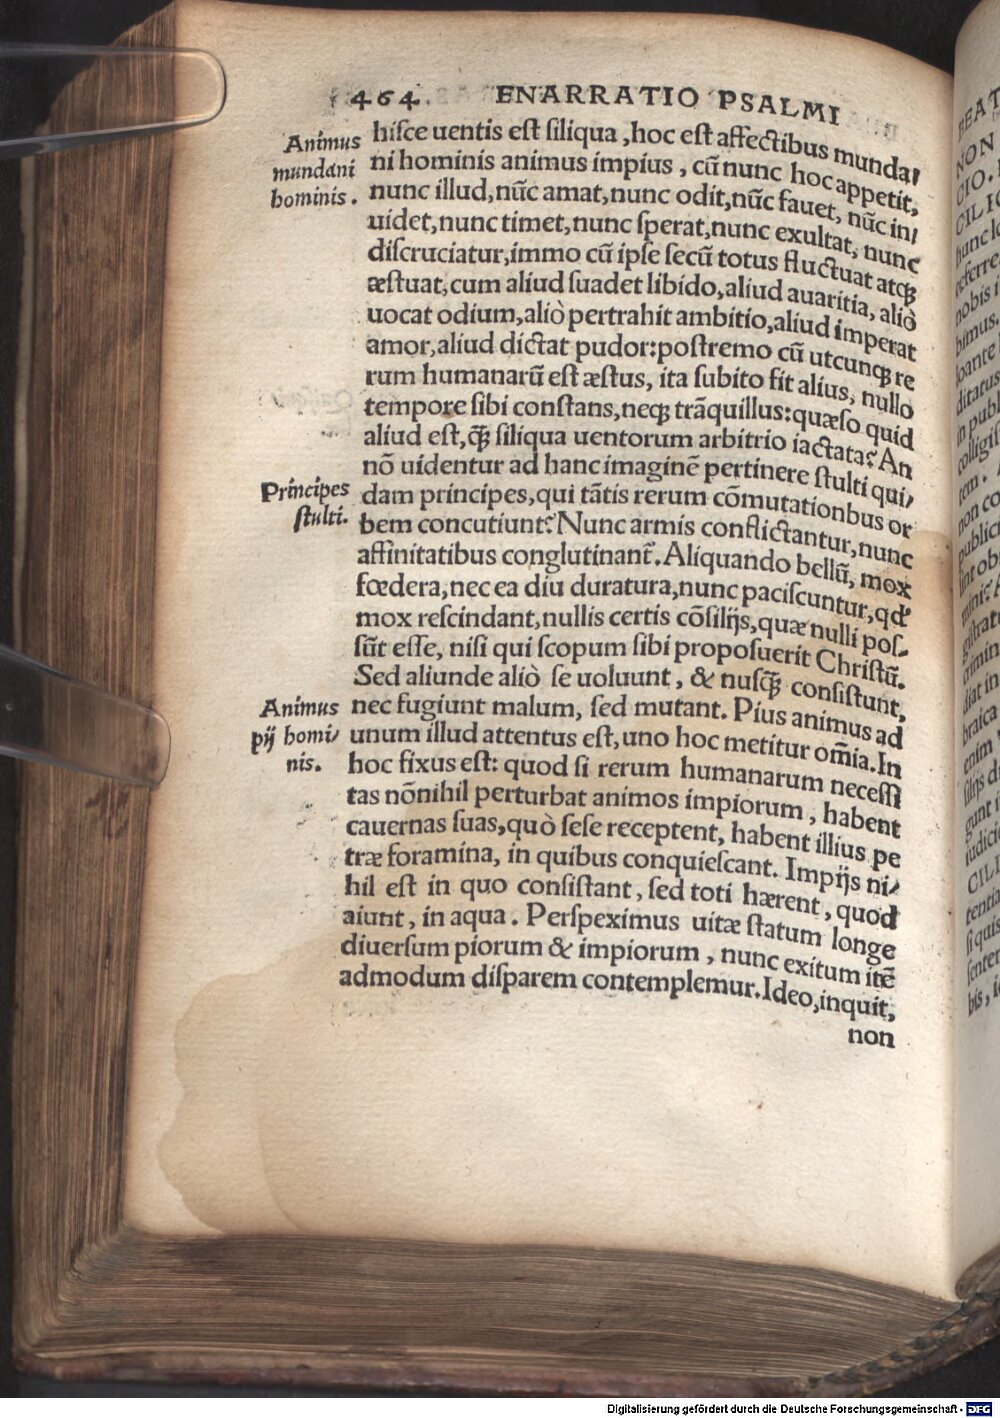 464. ENARRATIO PSALMI
Animus
mundani
hominis.
hiſce uentis eſt ſiliqua, hoc eſt affectibus munda/
ni hominis animus impius, cũ nunc hoc appetit,
nunc illud, nũc amat, nunc odit, nũc fauet, nũc in/
uidet, nunc timet, nunc ſperat, nunc exultat, nunc
diſcruciatur, immo cũ ipſe ſecũ totus fluctuat atqꝫ
æſtuat, cum aliud ſuadet libido, aliud auaritia, aliò
uocat odium, aliò pertrahit ambitio, aliud imperat
amor, aliud dictat pudor: poſtremo cũ utcunqꝫ re
rum humanarũ eſt æſtus, ita ſubito fit alius, nullo
tempore ſibi conſtans, neqꝫ trãquillus: quæſo quid
aliud eſt, q̃ꝫ ſiliqua uentorum arbitrio iactata? An
nõ uidentur ad hanc imaginẽ pertinere ſtulti qui/
Principes
ſtulti.
dam principes, qui tãtis rerum cõmutationbus or
bem concutiunt? Nunc armis conflictantur, nunc
affinitatibus conglutinant̃. Aliquando bellũ, mox
fœdera, nec ea diu duratura, nunc paciſcuntur, qđ
mox reſcindant, nullis certis cõſilijs, quæ nulli poſ-
ſũt eſſe, niſi qui ſcopum ſibi propoſuerit Chriſtũ.
Sed aliunde aliò ſe uoluunt, & nuſq̃ꝫ conſiſtunt,
Animus
pij homi/
nis.
nec fugiunt malum, ſed mutant. Pius animus ad
unum illud attentus eſt, uno hoc metitur om̃ia. In
hoc fixus eſt: quod ſi rerum humanarum neceſſi
tas nõnihil perturbat animos impiorum, habent
cauernas ſuas, quò ſeſe receptent, habent illius pe
træ foramina, in quibus conquieſcant. Impijs ni/
hil eſt in quo conſiſtant, ſed toti hærent, quod
aiunt, in aqua. Perſpeximus uitæ ſtatum longe
diuerſum piorum & impiorum, nunc exitum itẽ
admodum diſparem contemplemur. Ideo, inquit,
non
Digitalisierung gefördert durch die Deutsche Forschungsgemeinschaft - DFG